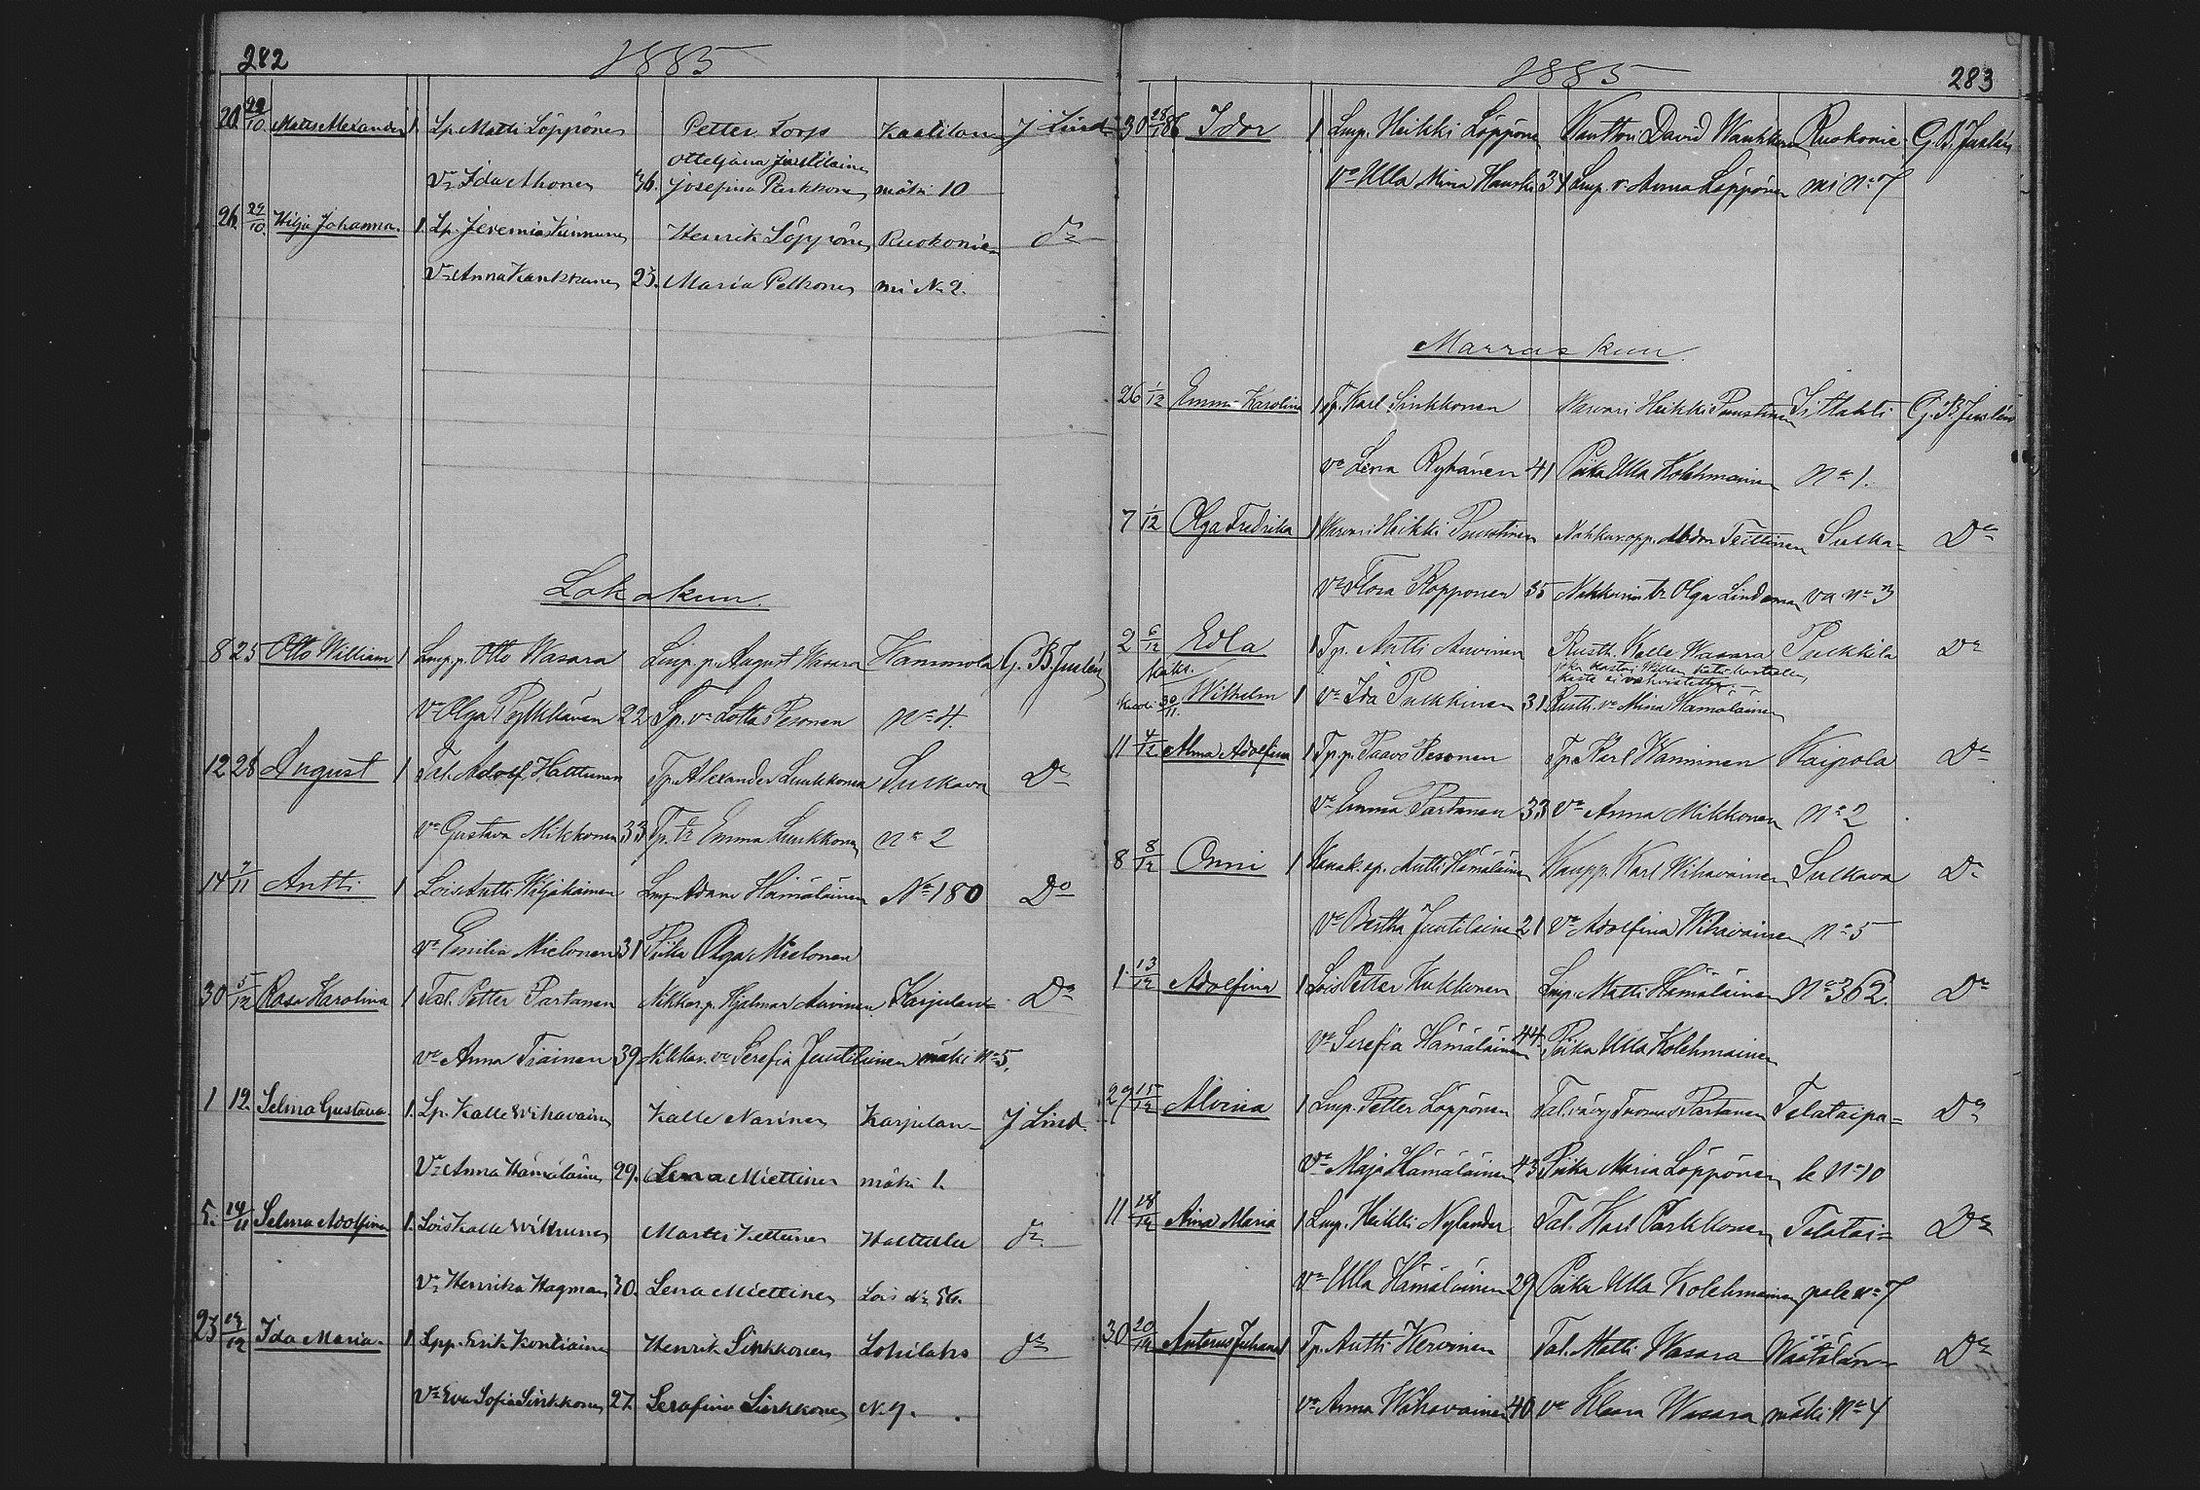 282 1885
20. 29/10 Matts Alexander 1. Lp. Matti Löppönen Petter Torp Kaatilan J Lind
Otteljana Justilainen
Vo Ida Ahonen 36. Josefina Parkkonen mäki 10
26. 29/10. Hilja Johanna. 1. Lp. Jeremia Kinnunen Henrik Löppönen Ruokonie= do
Vo Anna Kankkunen 23. Maria Pelkonen mi No 2.
Lokakuu.
8 25 Otto William 1 Lmp. p. Otto Wasara Lmp. p. August Wasara Hammola G. B. Juslén
Vo Olga Pylkkänen 22 Tp. vo Lotta Pesonen No 4.
12 28 August 1 Tal. Adolf Halttunen Tp. Alexander Luukkonen Sulkava Do
vo Gustava Mikkonen 33 Tp. tr Emma Luukkonen No 2
14 7/11 Antti 1 Lois Antti Wiljakainen Lmp. Adam Hämäläinen No 180 Do
vo Emilia Mielonen 31 Piika Olga Mielonen
30 5/12 Rosa Karolina 1 Tal. Petter Partanen Nikkar. p. Hjalmar Auvinen Karjulan= Do
vo Anna Tiainen 39 Nikkar. vo Serefia Juutilainen mäki No 5.
1 12. Selma Gustava 1. Lp. Kalle Wihavainen Kalle Narinen Karjulan= J Lind.
Vo Anna Hämäläinen 29. Lena Miettinen mäki 1.
5. 14/11 Selma Adolfina 1. Lois Kalle Wikrunen Martti Kettunen Halttula do
Vo Henrika Hagman 30. Lena Miettinen Lois No 56.
23 13/12 Ida Maria. 1. Lpp. Erik Kontiainen Henrik Sinkkonen Lohilahi do
Vo Eva Sofia Sinkkonen 27. Serafina Sinkkonen N. 9.
1885 283
30 Idor 1 Lmp. Heikki Löppönen Kanttori David Wankkonen Ruokonie G. B. Juslén
vo Ulla Mina Hanski 34 Lmp. v. Anna Löppönen mi No 7
Marraskuu.
26 1/12 Emma Karolina 1 Tp. Karl Sinkkonen Wanori Heikki Puustinen Iitlahti G. B. Juslén
vo Lena Ryhänen 41 Piika Ulla Kolehmainen No 1.
7 1/12 Olga Fredrika 1 Wanori Heikki Puustinen Nahkur. opp. Abdon Teittinen Sulka= Do
vo Flora Kopponen 35 Nahkurin tr Olga Lindeman va No 3
2 6/12 Edla 1 Tp. Antti Auvinen Rusth. Kalle Wasara Pulkkila Do
kuoli 30/11. Wilhelm 1 vo Ida Pulkkinen 31 Rusth. vo Mina Hämäläinen
11 4/12 Alma Adolfina 1 Tp. p. Paavo Pesonen Tp. Karl Wanninen Kaipola Do
vo Emma Partanen 33 vo Anna Mikkonen No 2
8 8/12 Onni 1 Antti Hämäläinen Kaupp. Karl Wihavainen Sulkava Do
vo Bertha Juutilainen 21 vo Adolfina Wihavainen No 5
1 13/12 Adolfina 1 Lois Petter Kukkonen Lmp. Matti Hämäläinen No 362. Do
vo Serefia Hämäläinen 44. Piika Ulla Kolehmainen
29 15/12 Alvina 1 Lmp. Petter Löppönen Tal. Tuomas Partanen Telataipa= Do
vo Maja Hämäläinen 43 Piika Maria Löppönen le No 10
11 18/12 Aina Maria 1 Lmp. Heikki Nylander Tal. Karl Parkkonen Telatai= Do
vo Ulla Hämäläinen 29 Piika Ulla Kolehmainen pale No 7
30 20/12 Anterus Juhana 1 Tp. Antti Kervinen Tal. Matti Wasara Wäätälän= Do
vo Anna Wihavainen 40 vo Klaara Wasara mäki No 4